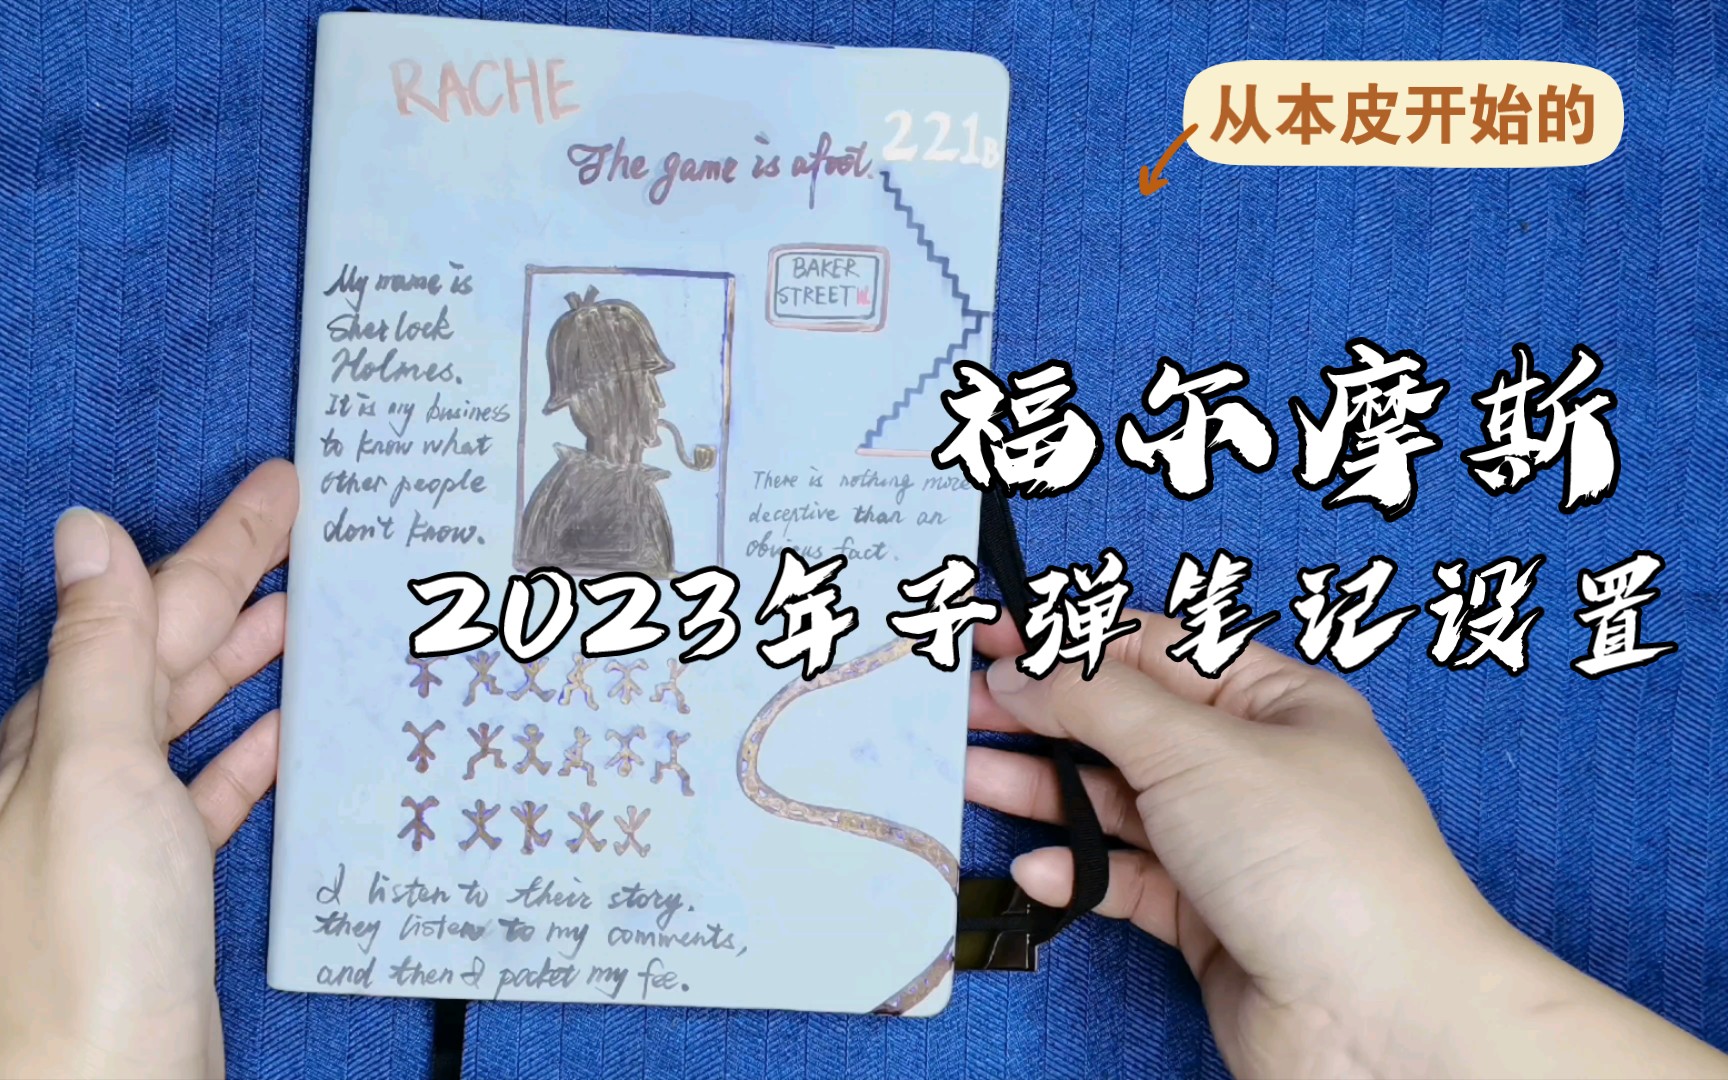 从本皮开始的
RACHE
The game is afoot.
221B
BAKER
STREET W.
My name is
Sherlock
Holmes.
It is my business
to know what
other people
don't know.
There is nothing more
deceptive than an
obvious fact.
福尔摩斯
2023年子弹笔记设置
I listen to their story.
they listen to my comments,
and then I pocket my fee.